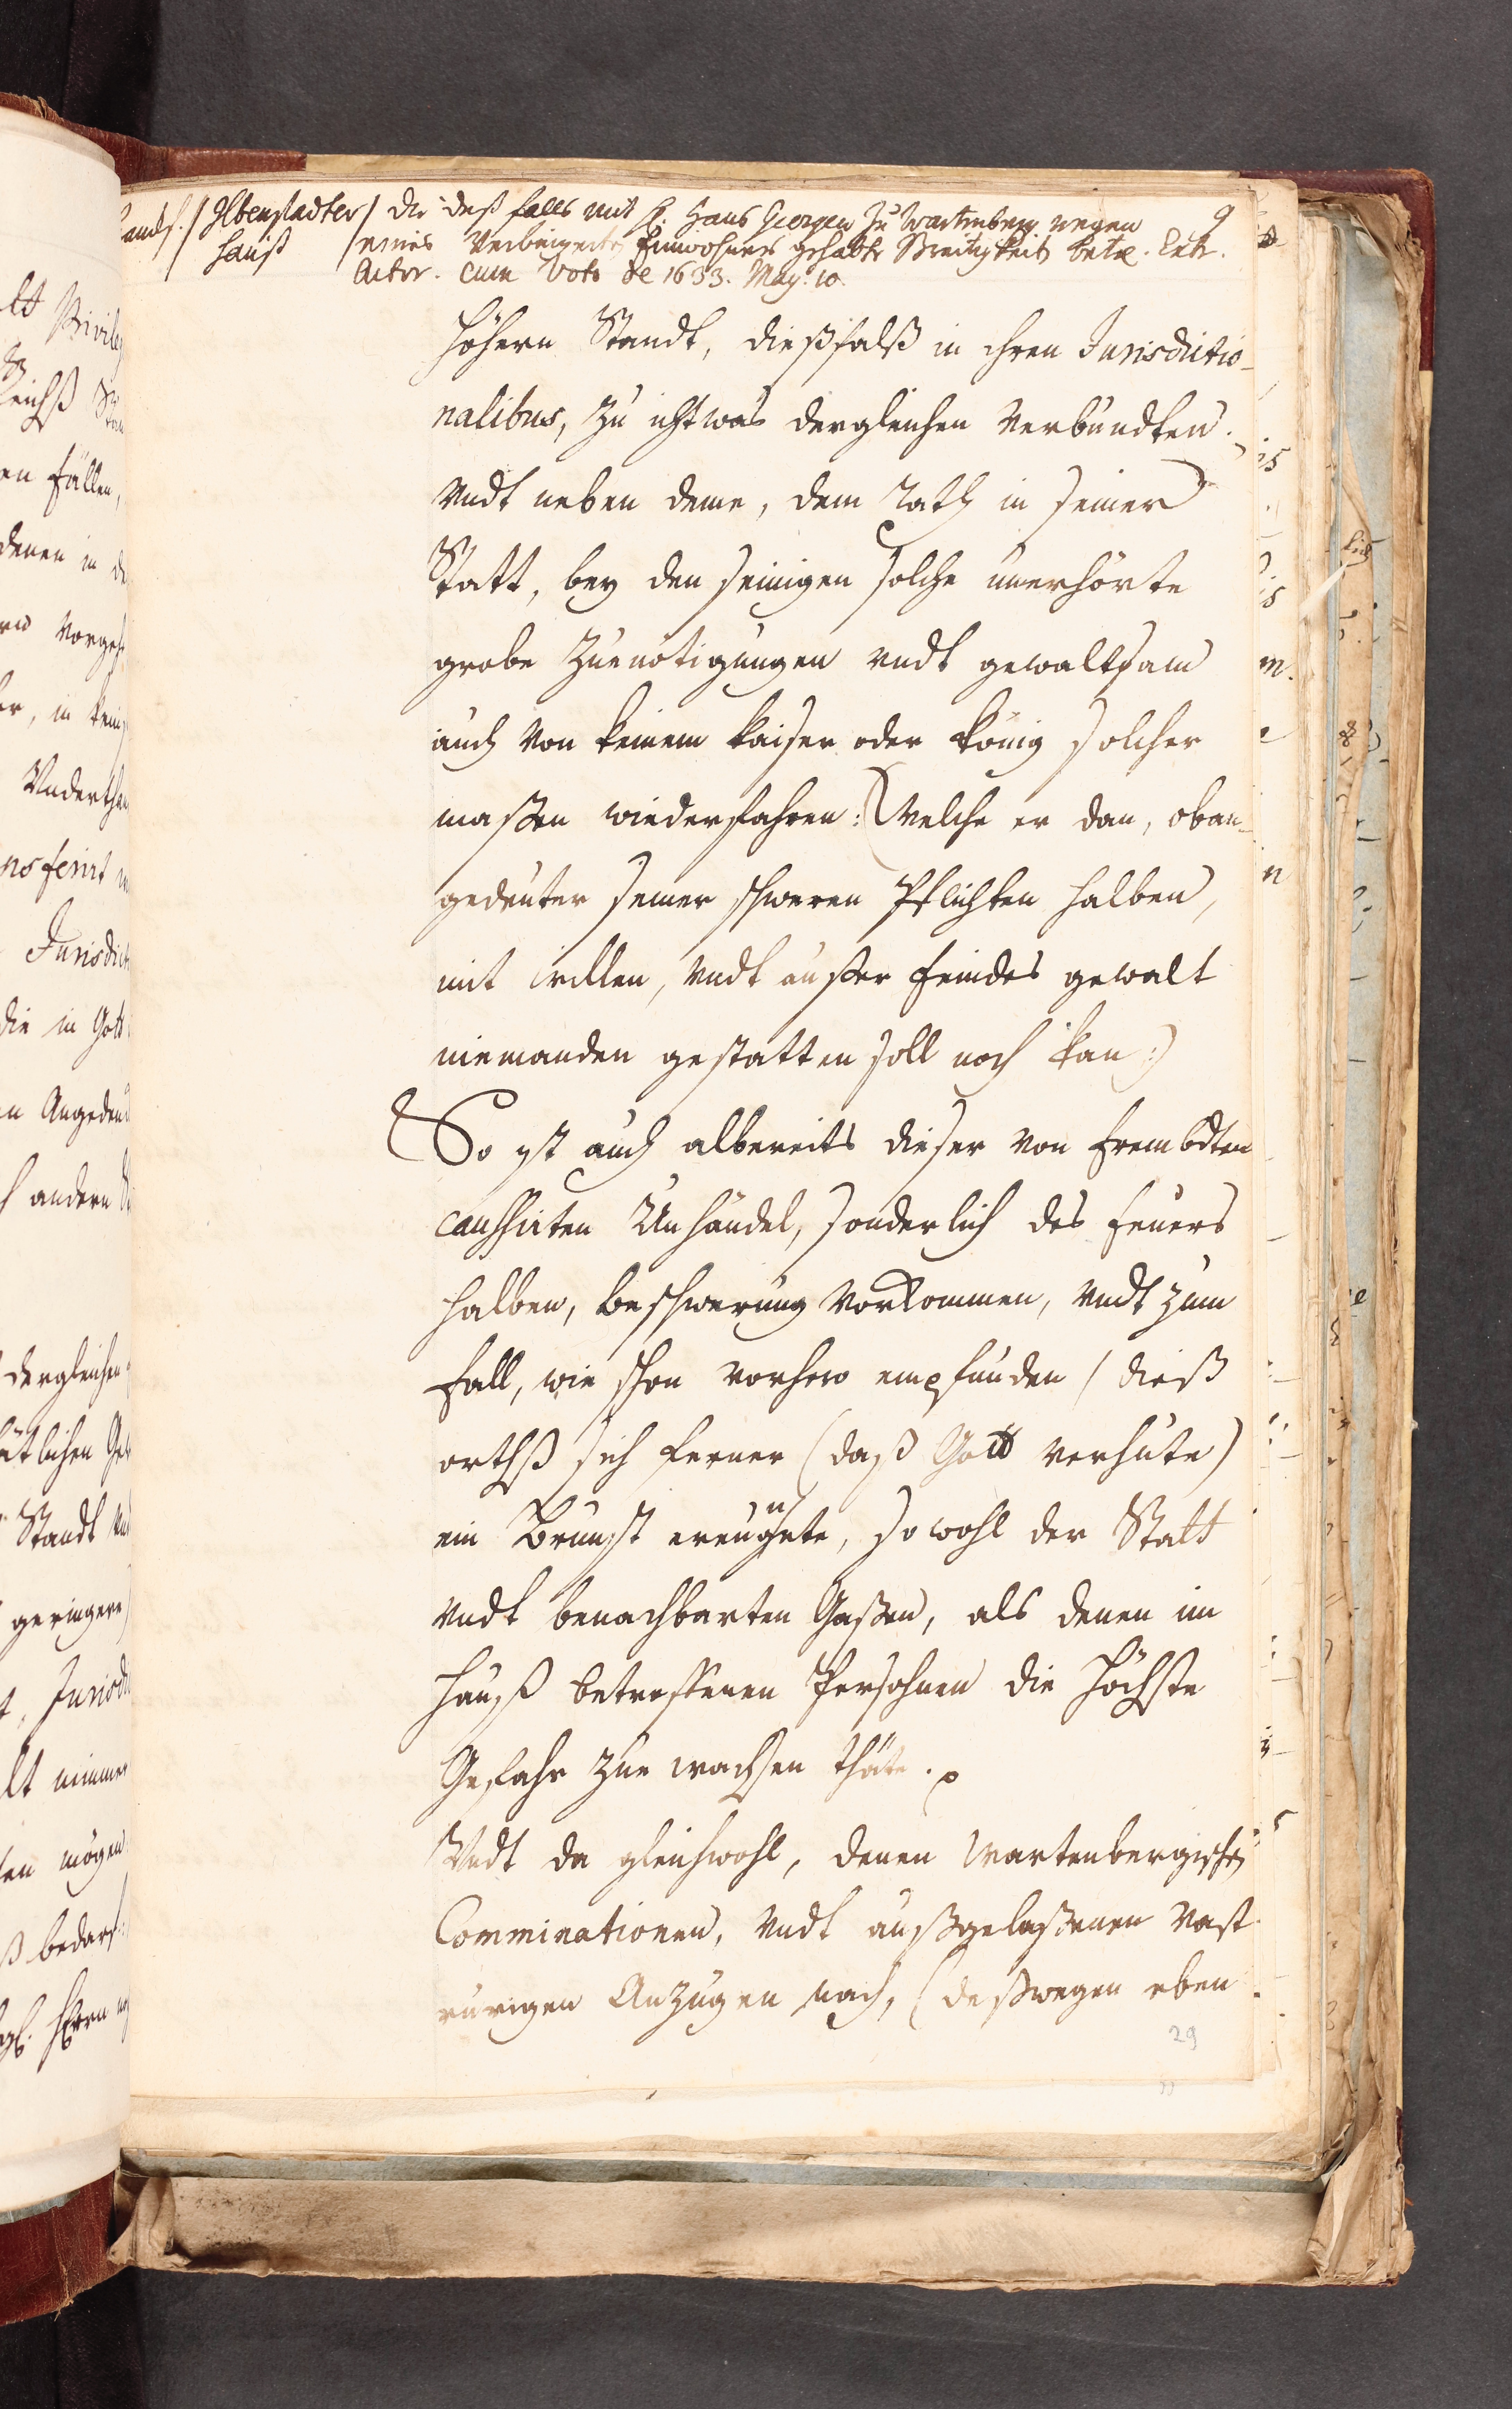 Ilbenstadter / die deß falls mit H. Hans Georgen Zu Wartenberg wegen 9
Hauß / eines Einwohners gehabte Streitigkeit betr.
Actor. cum Voto de 1633. May. 10.
höhern Standt, dießfalß in ihren Jurisdictio-
nalibus, zu ichtwas dergleichen verbundten.
Vndt neben deme, dem Rath in seiner
Statt, bey den seinigen solche unerhörte
grobe Zuenötigungen vndt gewaltsam
auch von keinem Kaiser oder König solcher
maßen wiederfahren: (welche er dan, oban-
gedeuter seiner schweren Pflichten halben,
mit willen, vndt außer feindes gewalt
niemanden gestatten soll noch kan:)
So ist auch albereits dieser von frembdten
caussirten Unhändel, sonderlich des feuers
halben, beschwerung vorkommen, vndt zum
fall, wie schon vorhero empfunden / dieß
orthß sich ferner (daß Gott verhüte)
ein Brunst ereugnete, so wohl der Statt
vndt benachbarten Gaßen, als denen im
Hauß betroffenen Persohnen die höchste
Gefahr zue wachsen thäte.
Vndt da gleichwohl, denen Wartenbergischen
Comminationen, vndt außgelaßenen Vast
rurigen Anzugen nach, (deßwegen eben
29